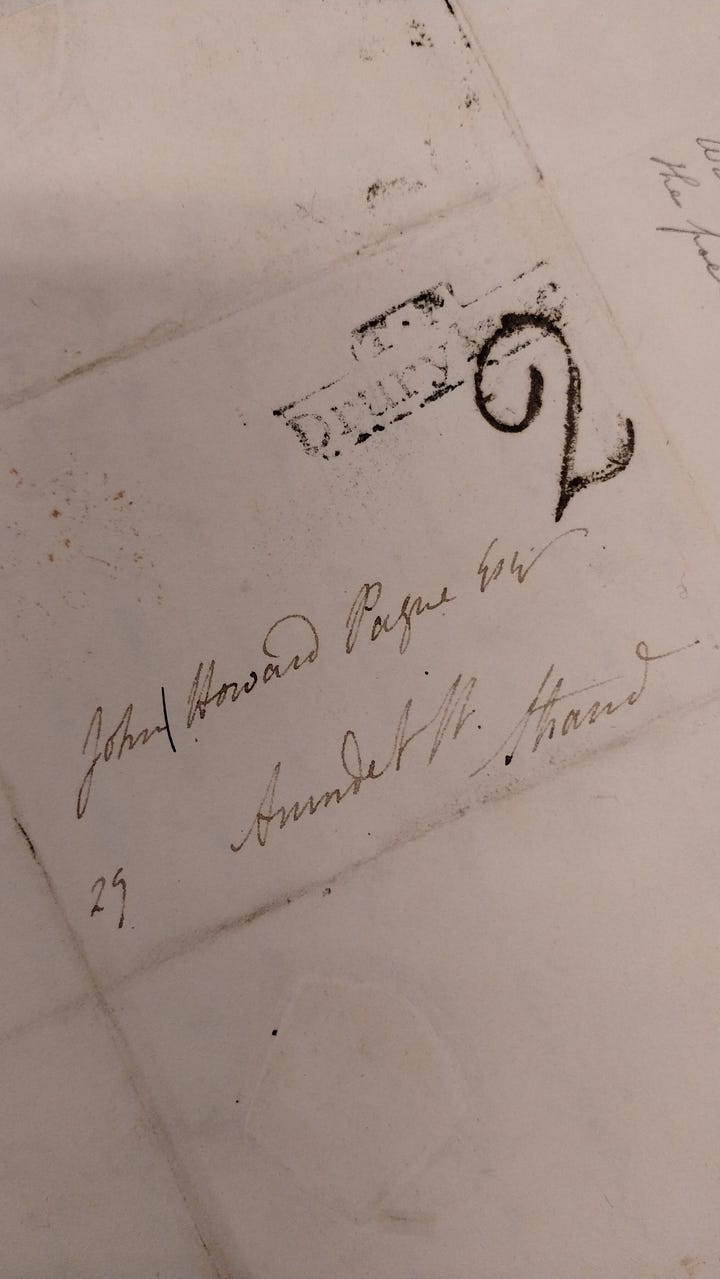 T.P
Drury
2
John Howard Payne Esqr
Arundel St. Strand
29
the poe